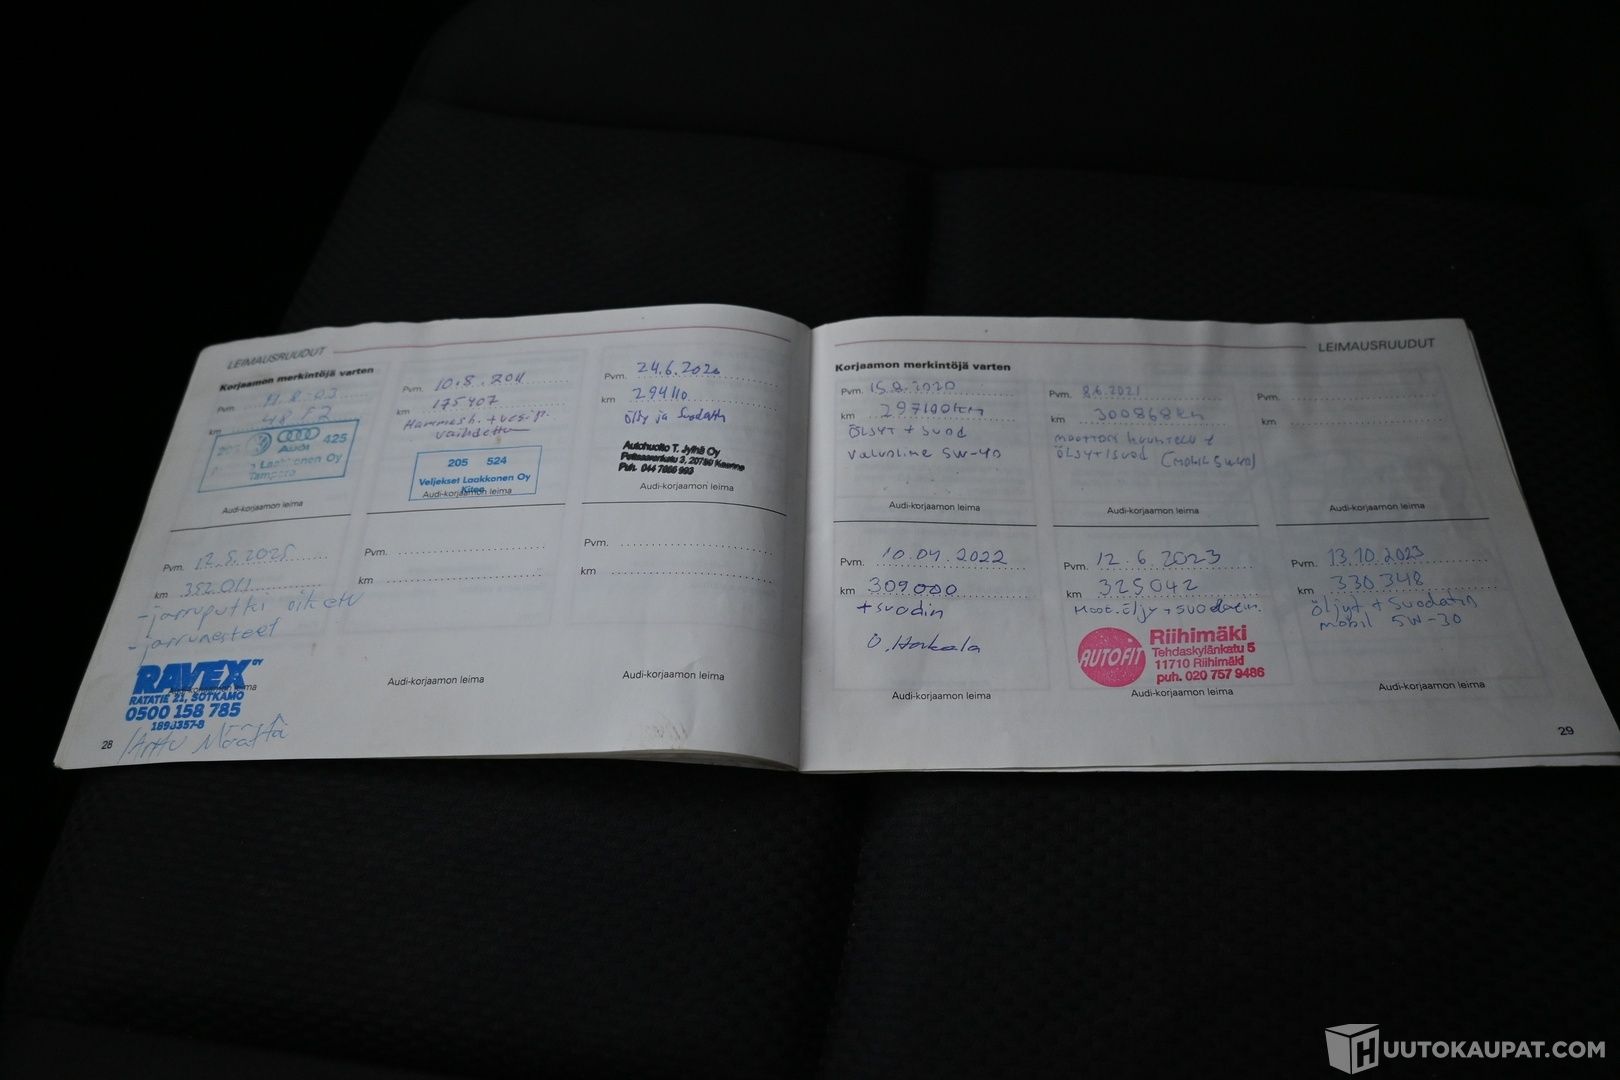 LEIMAUSRUUDUT
Korjaamon merkintöjä varten
Pvm.
km
Audi
425
Laakkonen Oy
Tampere
Audi-korjaamon leima
Pvm. 10.8.2011
km 175407
Hammash. + vesip.
vaihdettu
205 524
Veljekset Laakkonen Oy
Kitee
Audi-korjaamon leima
Pvm. 24.6.2020
km 294110
Öljy ja Suodatin
Autohuolto T. Jylhä Oy
Puh. 044
Audi-korjaamon leima
Pvm. 12.5.2025
km 352011
-jarruputki oikea
-jarrunesteet
RAVEX OY
RATATIE 21, SOTKAMO
0500 158 785
Arttu Määttä
28
Pvm.
km
Audi-korjaamon leima
Pvm.
km
Audi-korjaamon leima
LEIMAUSRUUDUT
Korjaamon merkintöjä varten
Pvm. 15.8.2020
km 297100km
ÖLJYT + SUOD
Valvoline 5W-40
Audi-korjaamon leima
Pvm. 8.6.2021
km 300868km
moottori huuhtelu +
öljyt + suod (mobil 5w40)
Audi-korjaamon leima
Pvm.
km
Audi-korjaamon leima
Pvm. 10.04.2022
km 309000
+ suodin
Audi-korjaamon leima
Pvm. 12.6.2023
km 325042
Moot.öljy + suodatin.
AUTOFIT
Riihimäki
Tehdaskylänkatu 5
11710 Riihimäki
puh. 020 757 9486
Audi-korjaamon leima
Pvm. 13.10.2023
km 330348
öljyt + Suodatin
mobil 5W-30
Audi-korjaamon leima
29
HUUTOKAUPAT.COM